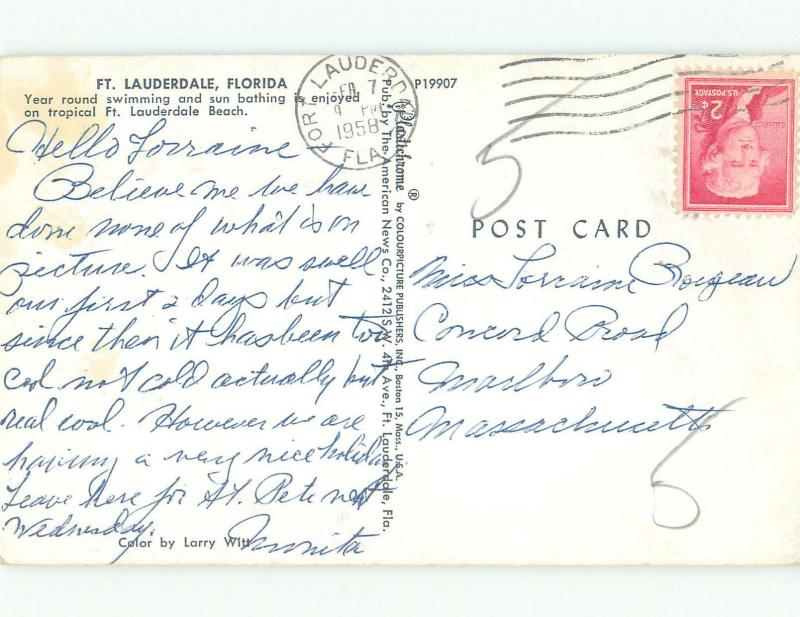 FT. LAUDERDALE, FLORIDA
Year round swimming and sun bathing is enjoyed
on tropical Ft. Lauderdale Beach.
Hello Lorraine
Believe me we have
done none of what is on
picture. It was swell
our first 2 days but
since then it has been too
cool not cold actually but
real cool. However we are
having a very nice holiday
Leave here for St. Pete next
Wednesday.
Color by Larry Witt
P19907
Plastichrome ® by COLOURPICTURE PUBLISHERS, INC., Boston 15, Mass., U.S.A.
Pub. by The American News Co., 2412 S.W. 4th Ave., Ft. Lauderdale, Fla.
FORT LAUDERDALE
7
PM
1958
FLA.
U.S. POSTAGE
2¢
5
POST CARD
Miss Lorraine
Concord Road
Marlboro
Massachusetts